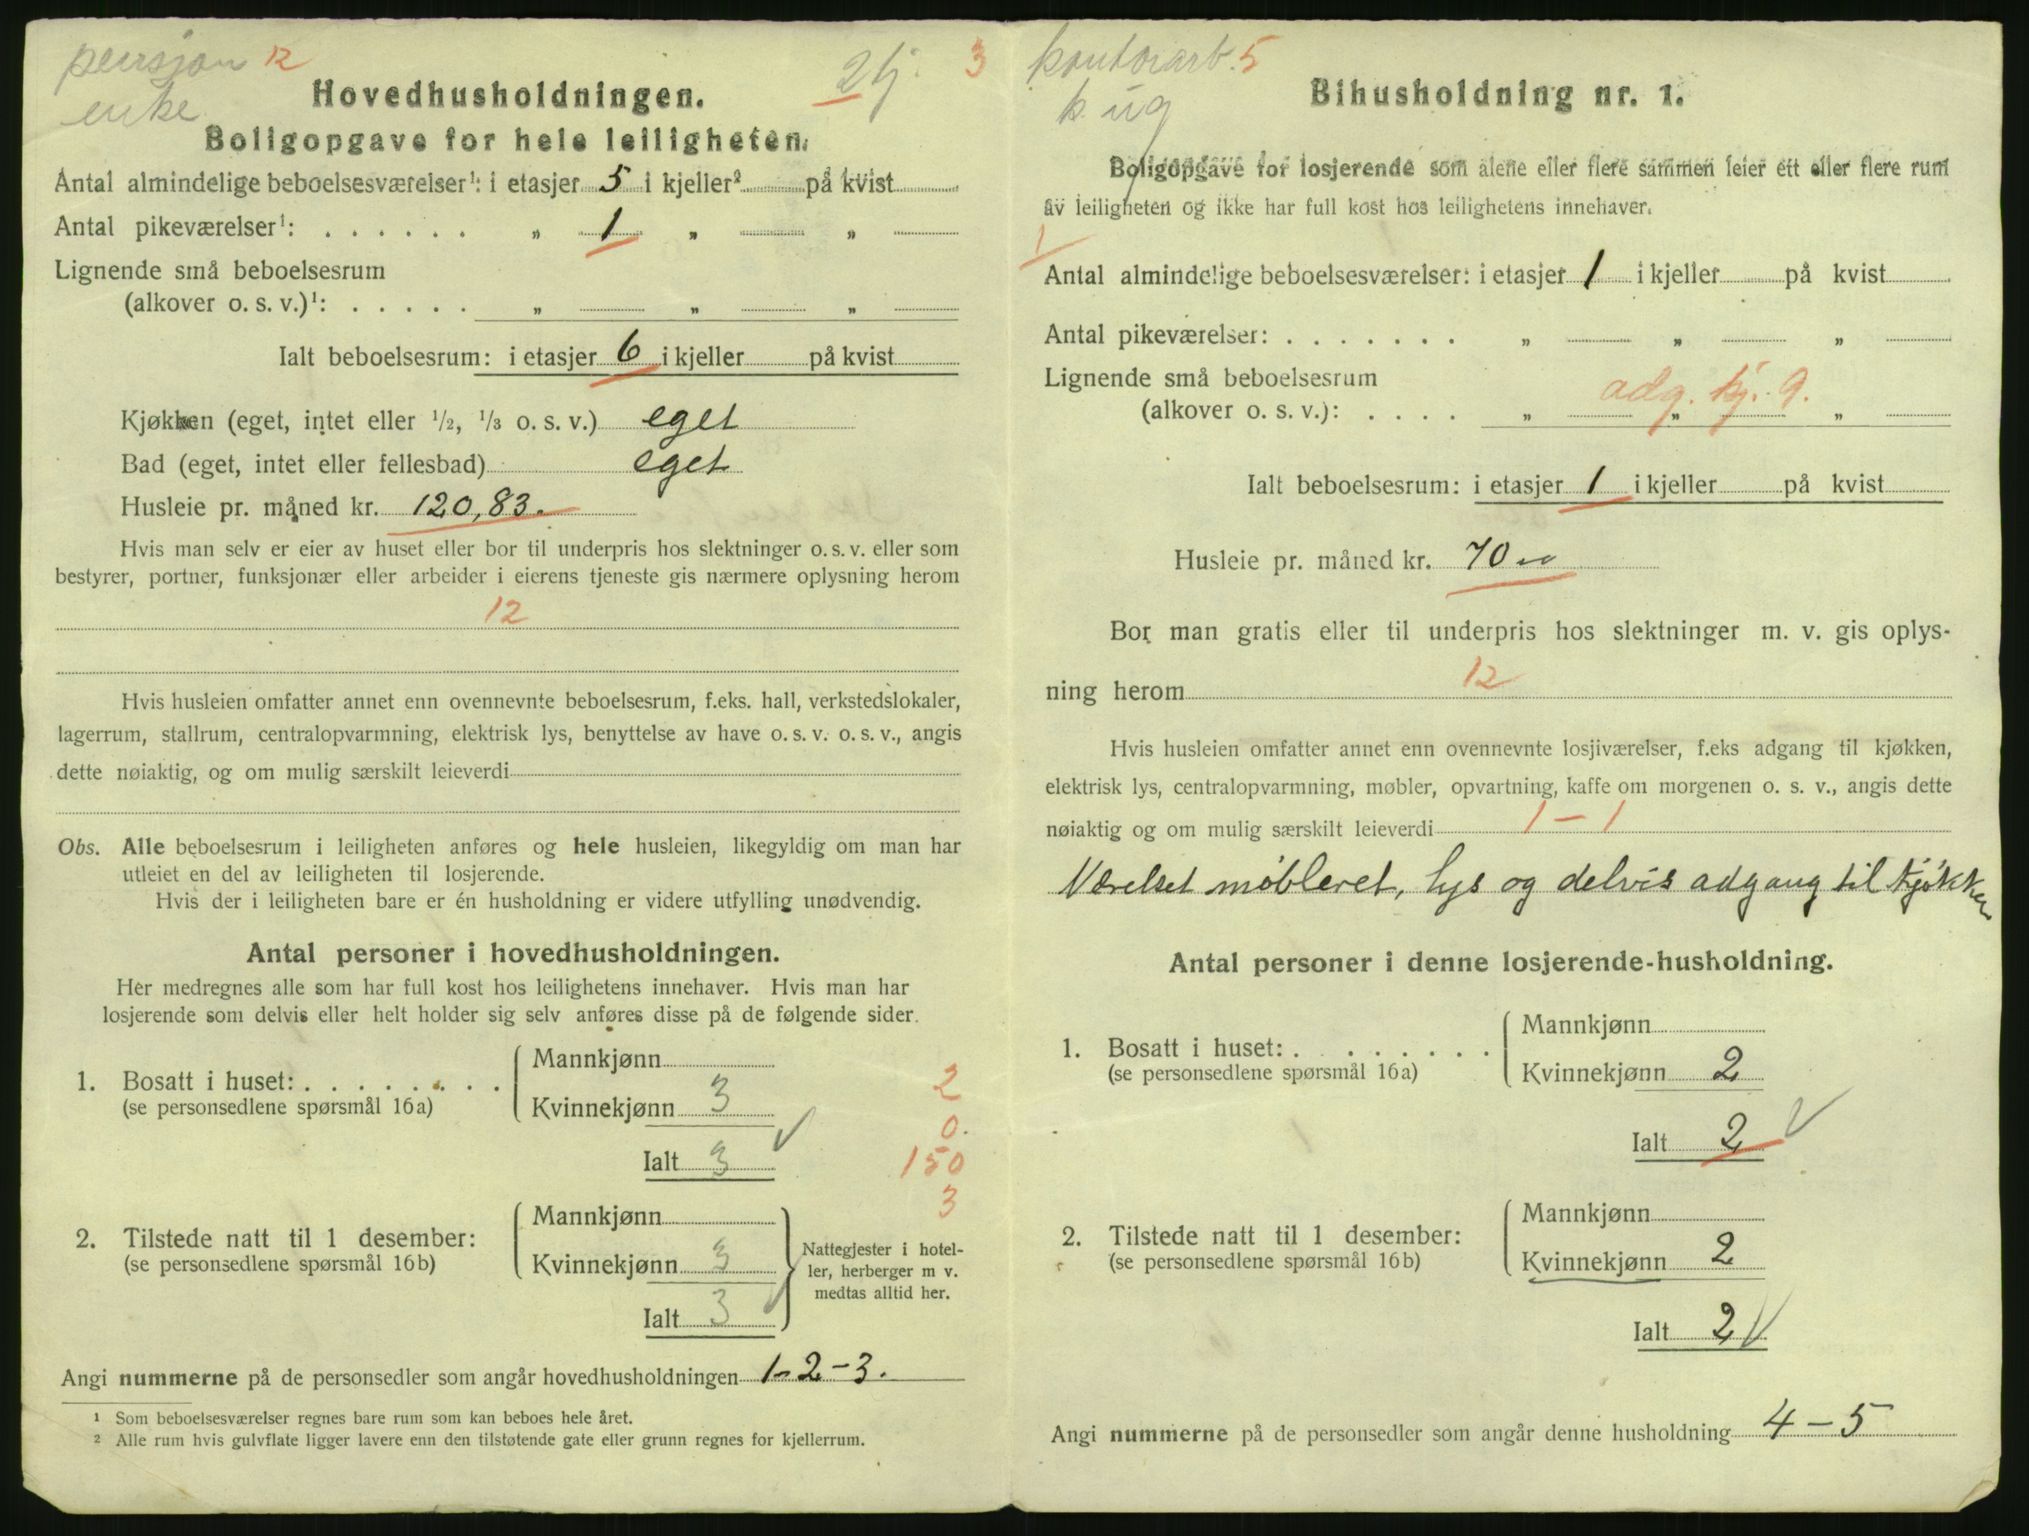 pensjon 12
enke
2 tj. 3
Hovedhusholdningen.
Boligopgave for hele leiligheten.
Antal almindelige beboelsesværelser¹: i etasjer 5 i kjeller² på kvist
Antal pikeværelser¹: . . . . . . „ 1 „ „
Lignende små beboelsesrum
(alkover o. s. v.)¹: . . . . . „ „ „
Ialt beboelsesrum: i etasjer 6 i kjeller på kvist
Kjøkken (eget, intet eller 1/2, 1/3 o. s. v.) eget
Bad (eget, intet eller fellesbad) eget
Husleie pr. måned kr. 120,83.
Hvis man selv er eier av huset eller bor til underpris hos slektninger o. s. v. eller som
bestyrer, portner, funksjonær eller arbeider i eierens tjeneste gis nærmere oplysning herom
12
Hvis husleien omfatter annet enn ovennevnte beboelsesrum, f.eks. hall, verkstedslokaler,
lagerrum, stallrum, centralopvarmning, elektrisk lys, benyttelse av have o. s. v. o. s. v., angis
dette nøiaktig, og om mulig særskilt leieverdi
Obs. Alle beboelsesrum i leiligheten anføres og hele husleien, likegyldig om man har
utleiet en del av leiligheten til losjerende.
Hvis der i leiligheten bare er én husholdning er videre utfylling unødvendig.
Antal personer i hovedhusholdningen.
Her medregnes alle som har full kost hos leilighetens innehaver. Hvis man har
losjerende som delvis eller helt holder sig selv anføres disse på de følgende sider.
Mannkjønn
1. Bosatt i huset: . . . . . . . .
2
(se personsedlene spørsmål 16a)
Kvinnekjønn 3
0.
Ialt 3
150
3
Mannkjønn
2. Tilstede natt til 1 desember:
(se personsedlene spørsmål 16b)
Kvinnekjønn 3
Nattegjester i hotel-
ler, herberger m v.
medtas alltid her.
Ialt 3
Angi nummerne på de personsedler som angår hovedhusholdningen 1-2-3.
¹ Som beboelsesværelser regnes bare rum som kan beboes hele året.
² Alle rum hvis gulvflate ligger lavere enn den tilstøtende gate eller grunn regnes for kjellerrum.
kontorarb. 5
k. ug
Bihusholdning nr. 1.
Boligopgave for losjerende som alene eller flere sammen leier ett eller flere rum
av leiligheten og ikke har full kost hos leilighetens innehaver.
1
Antal almindelige beboelsesværelser: i etasjer 1 i kjeller på kvist
Antal pikeværelser: . . . . . . . „ „ „
Lignende små beboelsesrum
adg. kj. 9.
(alkover o. s. v.): . . . . „ „ „
Ialt beboelsesrum: i etasjer 1 i kjeller på kvist
Husleie pr. måned kr. 70 00
Bor man gratis eller til underpris hos slektninger m. v. gis oplys-
12
ning herom
Hvis husleien omfatter annet enn ovennevnte losjiværelser, f.eks adgang til kjøkken,
elektrisk lys, centralopvarmning, møbler, opvartning, kaffe om morgenen o. s. v., angis dette
nøiaktig og om mulig særskilt leieverdi 1 - 1
Værelset møbleret, lys og delvis adgang til kjøkken
Antal personer i denne losjerende-husholdning.
Mannkjønn
1. Bosatt i huset: . . . . . . .
(se personsedlene spørsmål 16a)
Kvinnekjønn 2
Ialt 2
Mannkjønn
2. Tilstede natt til 1 desember:
(se personsedlene spørsmål 16b)
Kvinnekjønn 2
Ialt 2
Angi nummerne på de personsedler som angår denne husholdning 4 - 5